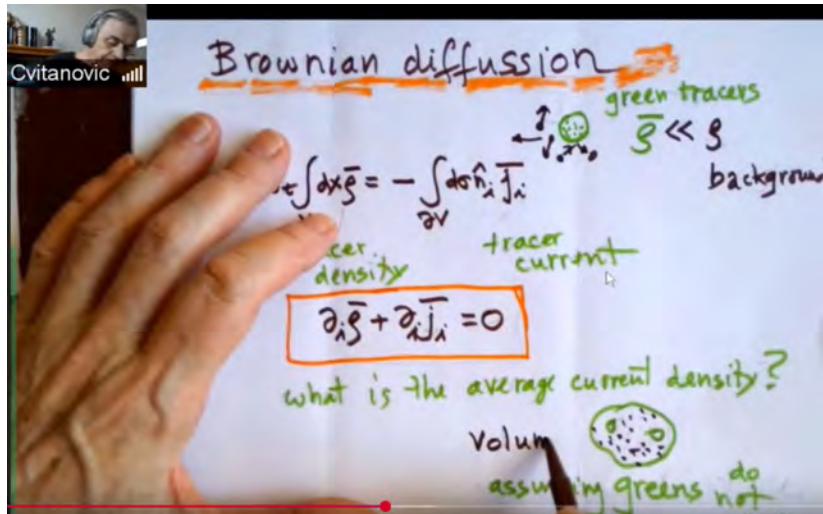 Cvitanovic
Brownian diffussion
green tracers
ρ̄ << ρ
background
∫dxρ̄ = - ∫dσn̂ᵢ j̄ᵢ
∂V
tracer
density
current
∂ᵢρ̄ + ∂ᵢj̄ᵢ = 0
what is the average current density?
Volum
assuming greens do
not